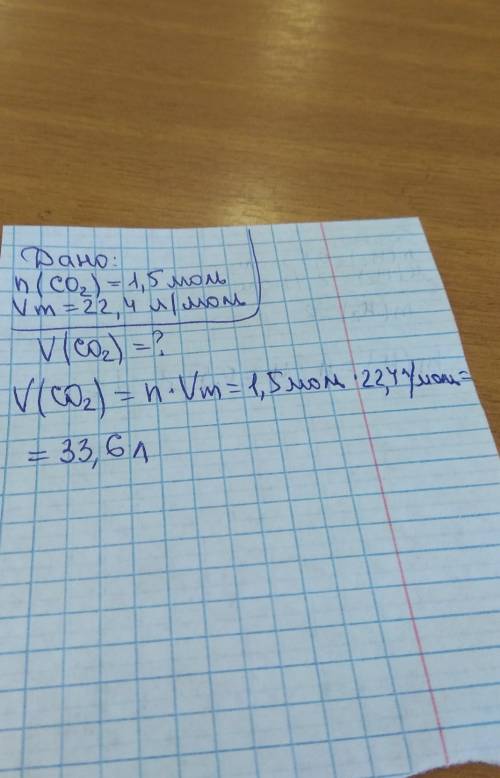 Дано:
n(CO₂) = 1,5 моль
Vm = 22,4 л/моль
V(CO₂) = ?
V(CO₂) = n · Vm = 1,5 моль · 22,4 л/моль =
= 33,6 л